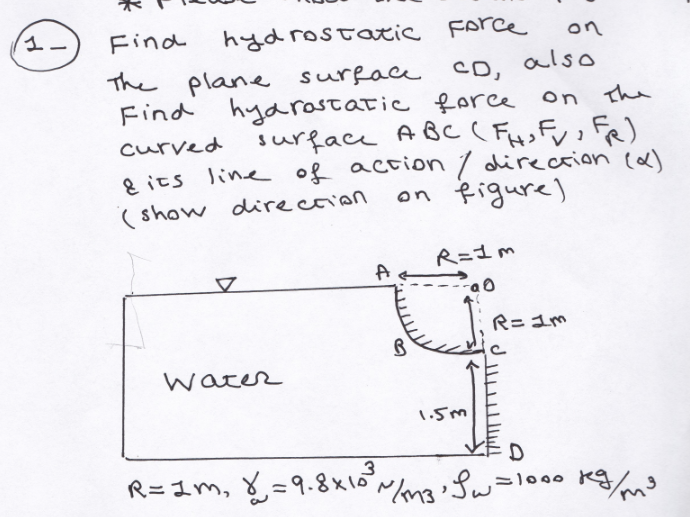 1- Find hydrostatic Force on
The plane surface CD, also
Find hydrostatic force on the
curved surface ABC (FH, FV, FR)
& its line of action / direction (α)
(show direction on figure)
R=1m
A
O
R=1m
B
C
Water
1.5m
D
R=1m, γw=9.8×10³ N/m3, ρw=1000 kg/m³